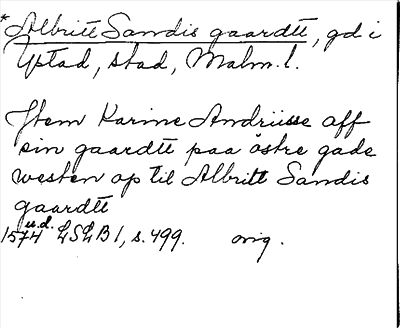 *Albritt Sandis gaardtt, gd i
Ystad, stad, Malm. l.
Jtem Karine Andriisse aff
sin gaardtt paa östre gade
westen op til Albritt Sandis
gaardtt
u.d.
1574 LSLB 1, s. 499. orig.